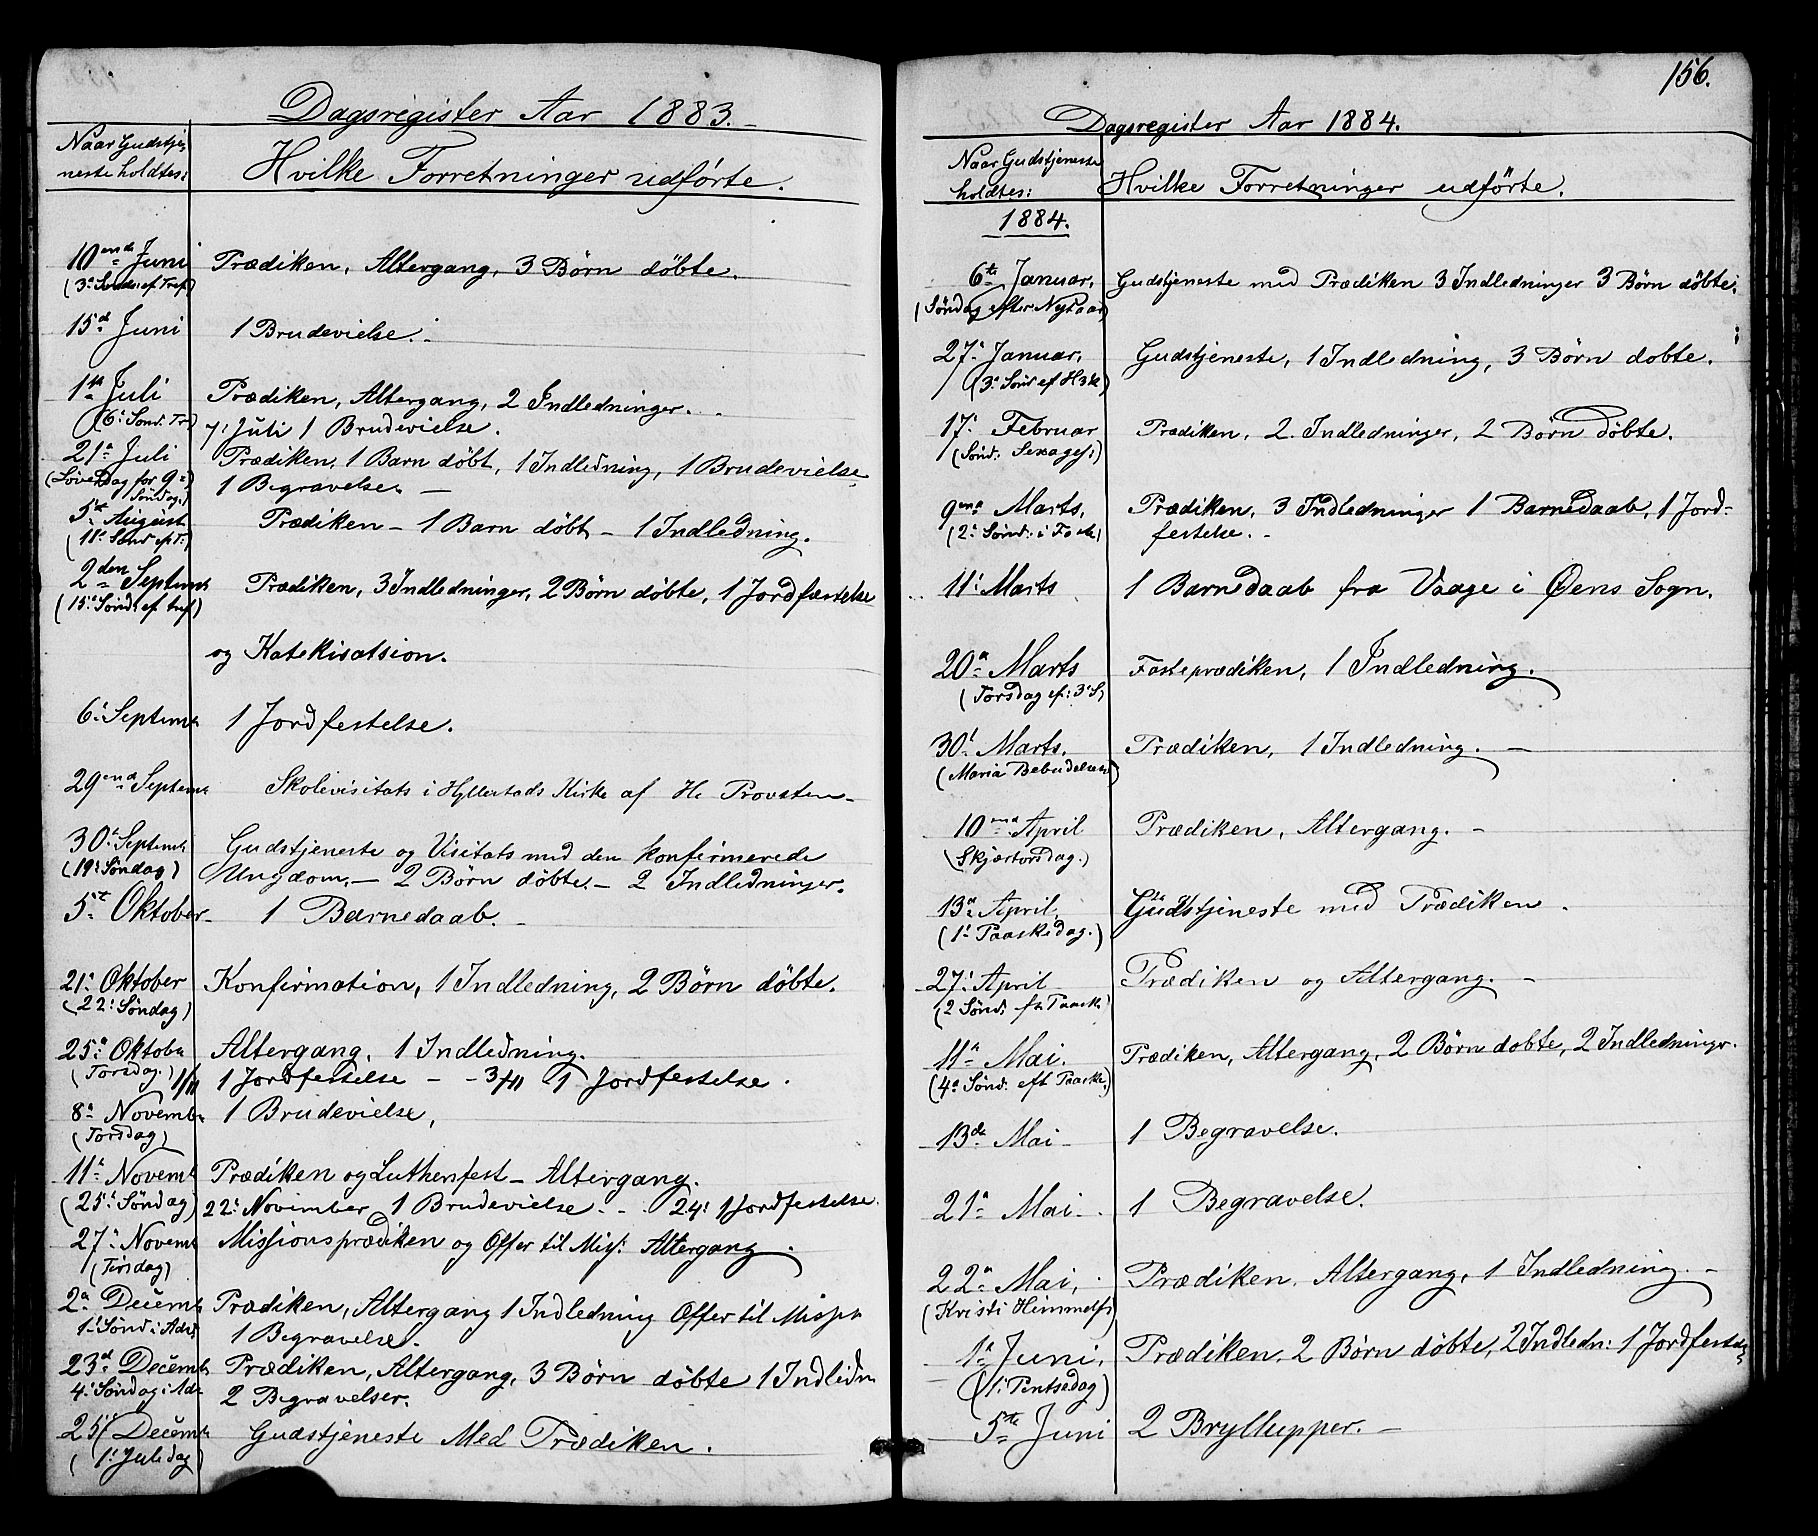 Dagsregister Aar 1883.
Naar Gudstje
neste holdtes:
Hvilke Forretninger udførte.
10ende Juni Prædiken, Altergang, 3 Børn døbte.
(3: Sønd: ef Tref)
15d Juni 1 Brudevielse.
1ste Juli Prædiken, Altergang, 2 Indledninger.
(6: Sønd: Tr) 7: Juli 1 Brudevielse.
21a Juli Prædiken, 1 Barn døbt, 1 Indledning, 1 Brudevielse
(Løverdag for 9: 1 Begravelse. —
Søndag)
5te August Prædiken — 1 Barn døbt — 1 Indledning.
(11: Sønd ef T:)
2den Septemb Prædiken, 3 Indledninger, 2 Børn døbte, 1 Jordfæstelse
(15: Sønd: ef Tref)
og Katekisatsion.
6: Septemb 1 Jordfestelse.
29end Septemb Skolevisitats i Hyllestads Kirke af Hr Provsten
30: Septemb Gudstjeneste og Visitats med den konfirmerede
(19: Søndag) Ungdom. — 2 Børn døbte. — 2 Indledninger.
5te Oktober 1 Barnedaab.
21: Oktober Konfirmation, 1 Indledning, 2 Børn døbte.
(22: Søndag)
25: Oktober Altergang, 1 Indledning.
(Torsdag.) 1/11 1 Jordfestelse - - 3/11 1 Jordfestelse.
8: Novemb 1 Brudevielse,
(Torsdag)
11: Novemb Prædiken og Luthersfest — Altergang.
(25: Søndag) 22: November 1 Brudevielse. - . 24: 1 Jordfestelse.
27: Novemb Missionsprædiken og Offer til Miss: Altergang.
(Tirsdag)
2: Decemb Prædiken, Altergang 1 Indledning Offer til Missj
1: Sønd i Adv 1 Begravelse.
23d Decemb Prædiken, Altergang, 3 Børn døbte 1 Indledn
4: Søndag i Ad 2 Begravelser.
25: Decemb Gudstjeneste Med Prædiken.
(1: Juledag)
156.
Dagsregister Aar 1884.
Naar Gudstjeneste
holdtes:
Hvilke Forretninger udførte.
1884.
6te Januar, Gudstjeneste med Prædiken 3 Indledninger 3 Børn døbte.
(Søndag efter Nytaar)
27: Januar, Gudstjeneste, 1 Indledning, 3 Børn dobte.
(3: Sønd ef H3k)
17: Februar Prædiken, 2 Indledninger, 2 Børn døbte.
(Sønd: Sexages:)
9ende Marts, Prædiken, 3 Indledninger 1 Barnedaab, 1 Jord-
(2: Sønd: i Faste) festelse.
11: Marts 1 Barnedaab fra Vaage i Øens Sogn.
20: Marts Fasteprædiken, 1 Indledning.
(Torsdag ef: 3: S)
30: Marts. Prædiken, 1 Indledning. —
(Mariæ Bebudelses)
10end April Prædiken, Altergang. —
(Skjærtorsdag.)
13: April Gudstjeneste med Prædiken.
(1: Paaskedag.)
27: April Prædiken og Altergang. —
(2 Sønd: fr Paaske)
11: Mai. Prædiken, Altergang, 2 Børn dobte, 2 Indledninger.
(4: Sønd: eft Paaske.)
13de Mai 1 Begravelse.
21: Mai 1 Begravelse.
22: Mai, Prædiken, Altergang, 1 Indledning. —
(Kristi Himmelf)
1: Juni, Prædiken, 2 Børn døbte, 2 Indledn: 1 Jordfest
(1: Pintsedag)
5te Juni 2 Bryllupper. —